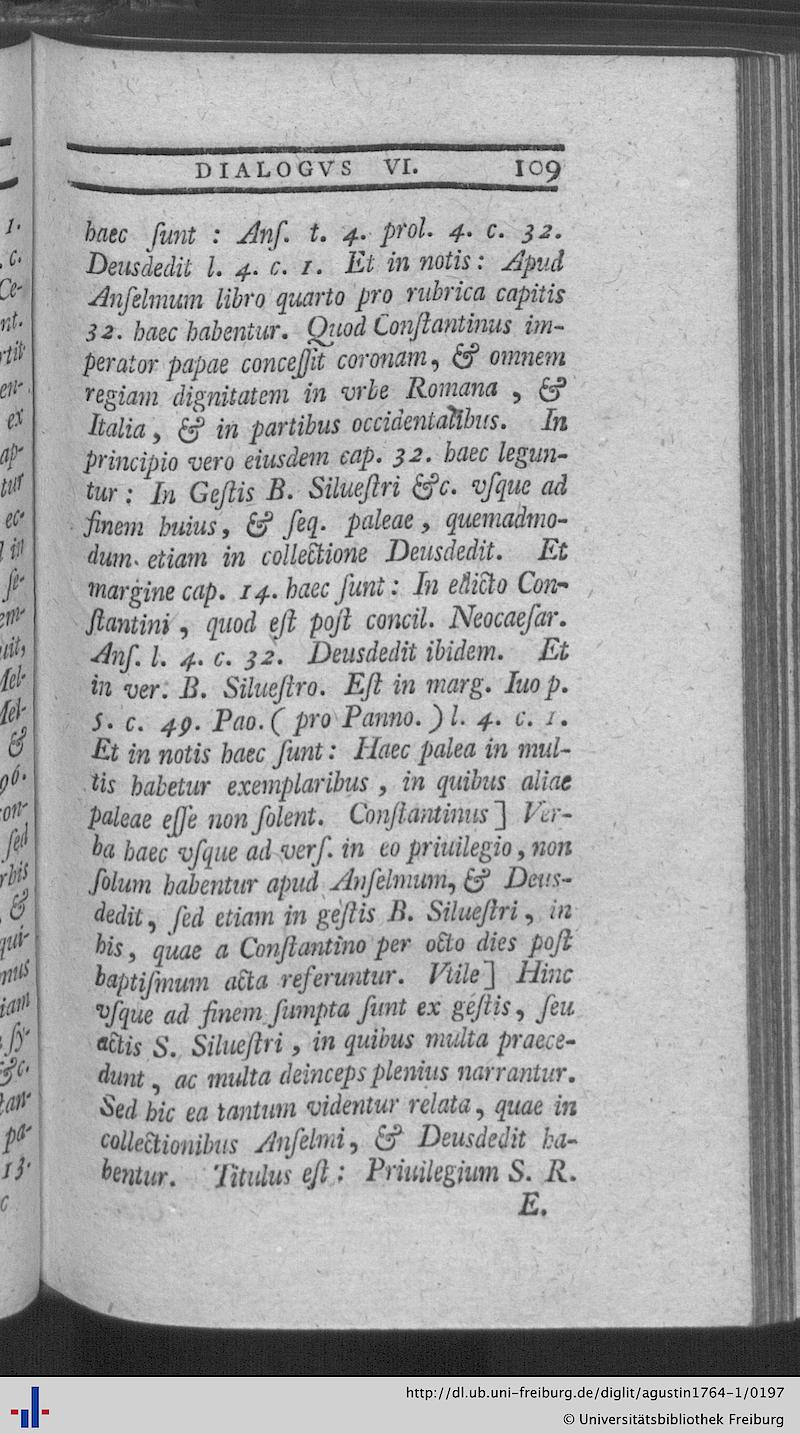 DIALOGVS VI. 109
haec ſunt : Anſ. t. 4. prol. 4. c. 32.
Deusdedit l. 4. c. 1. Et in notis: Apud
Anſelmum libro quarto pro rubrica capitis
32. haec habentur. Quod Conſtantinus im-
perator papae conceſſit coronam, & omnem
regiam dignitatem in vrbe Romana , &
Italia , & in partibus occidentalibus. In
principio vero eiusdem cap. 32. haec legun-
tur : In Geſtis B. Silueſtri &c. vſque ad
finem huius, & ſeq. paleae, quemadmo-
dum etiam in collectione Deusdedit. Et
margine cap. 14. haec ſunt: In edicto Con-
ſtantini, quod eſt poſt concil. Neocaeſar.
Anſ. l. 4. c. 32. Deusdedit ibidem. Et
in ver. B. Silueſtro. Eſt in marg. Iuo p.
5. c. 49. Pao. ( pro Panno. ) l. 4. c. 1.
Et in notis haec ſunt: Haec palea in mul-
tis habetur exemplaribus , in quibus aliae
paleae eſſe non ſolent. Conſtantinus] Ver-
ba haec vſque ad verſ. in eo priuilegio, non
ſolum habentur apud Anſelmum, & Deus-
dedit, ſed etiam in geſtis B. Silueſtri, in
his, quae a Conſtantino per octo dies poſt
baptiſmum acta referuntur. Vtile] Hinc
vſque ad finem ſumpta ſunt ex geſtis, ſeu
actis S. Silueſtri , in quibus multa praece-
dunt, ac multa deinceps plenius narrantur.
Sed hic ea tantum videntur relata, quae in
collectionibus Anſelmi, & Deusdedit ha-
bentur. Titulus eſt: Priuilegium S. R.
E.
http://dl.ub.uni-freiburg.de/diglit/agustin1764-1/0197
© Universitätsbibliothek Freiburg